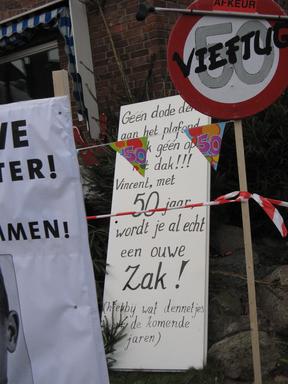 AFKEUR
50
VIEFTUG
VE
TER!
MEN!
Geen dode den
aan het plafond
k geen op
dak!!!
50
50
Vincent, met
50 jaar,
wordt je al echt
een ouwe
Zak!
(Hierbij wat dennetjes
de komende
jaren)